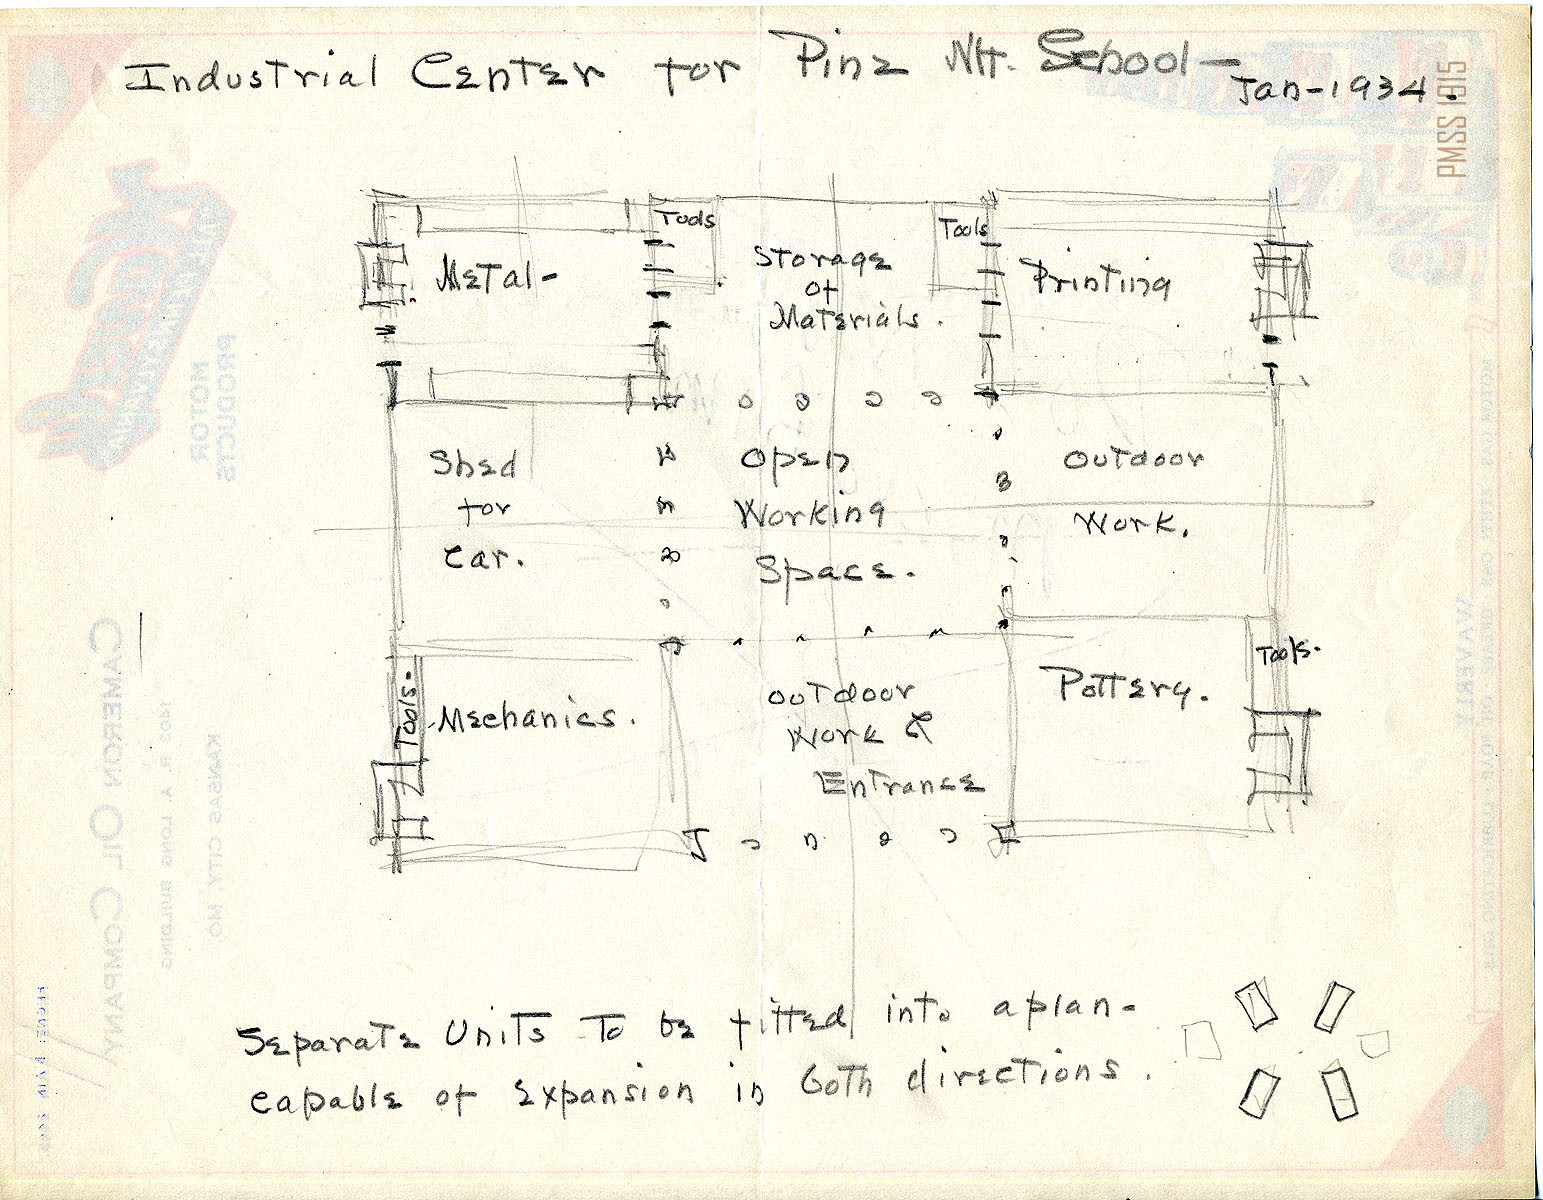 Industrial Center for Pine Mt. School -
Jan-1934.
PMSS 1915
Tools
Tools
Metal-
Storage
of
Materials.
Printing
Shed
for
Car.
Open
Working
Space.
Outdoor
Work.
Tools.
Mechanics.
Outdoor
Work &
Entrance
Pottery.
Tools.
Separate Units To be fitted into a plan-
capable of Expansion in both directions.
PRODUCTS
MOTOR
CAMERON OIL COMPANY
1403 R. A. LONG BUILDING
KANSAS CITY, MO.
WAVERLY